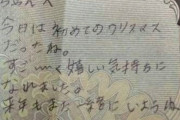 今日は初めてのクリスマス
だったね。
すごーく嬉しい気持ちに
なれました。
来年もまた一緒にいようね